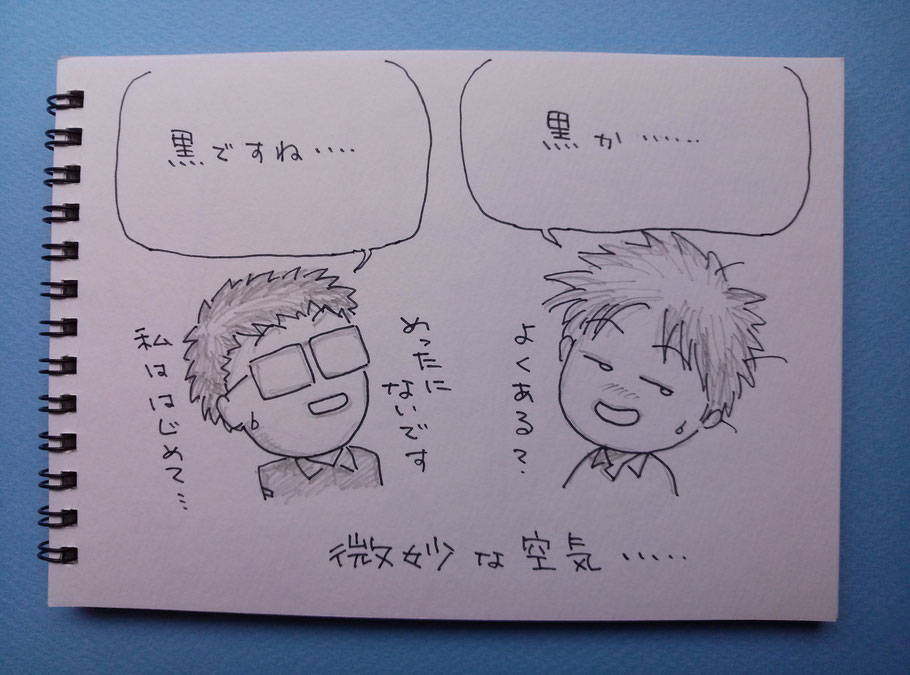 黒か……
黒ですね‥‥
よくある?
めったに
ないです
私ははじめて…
微妙な空気‥‥‥